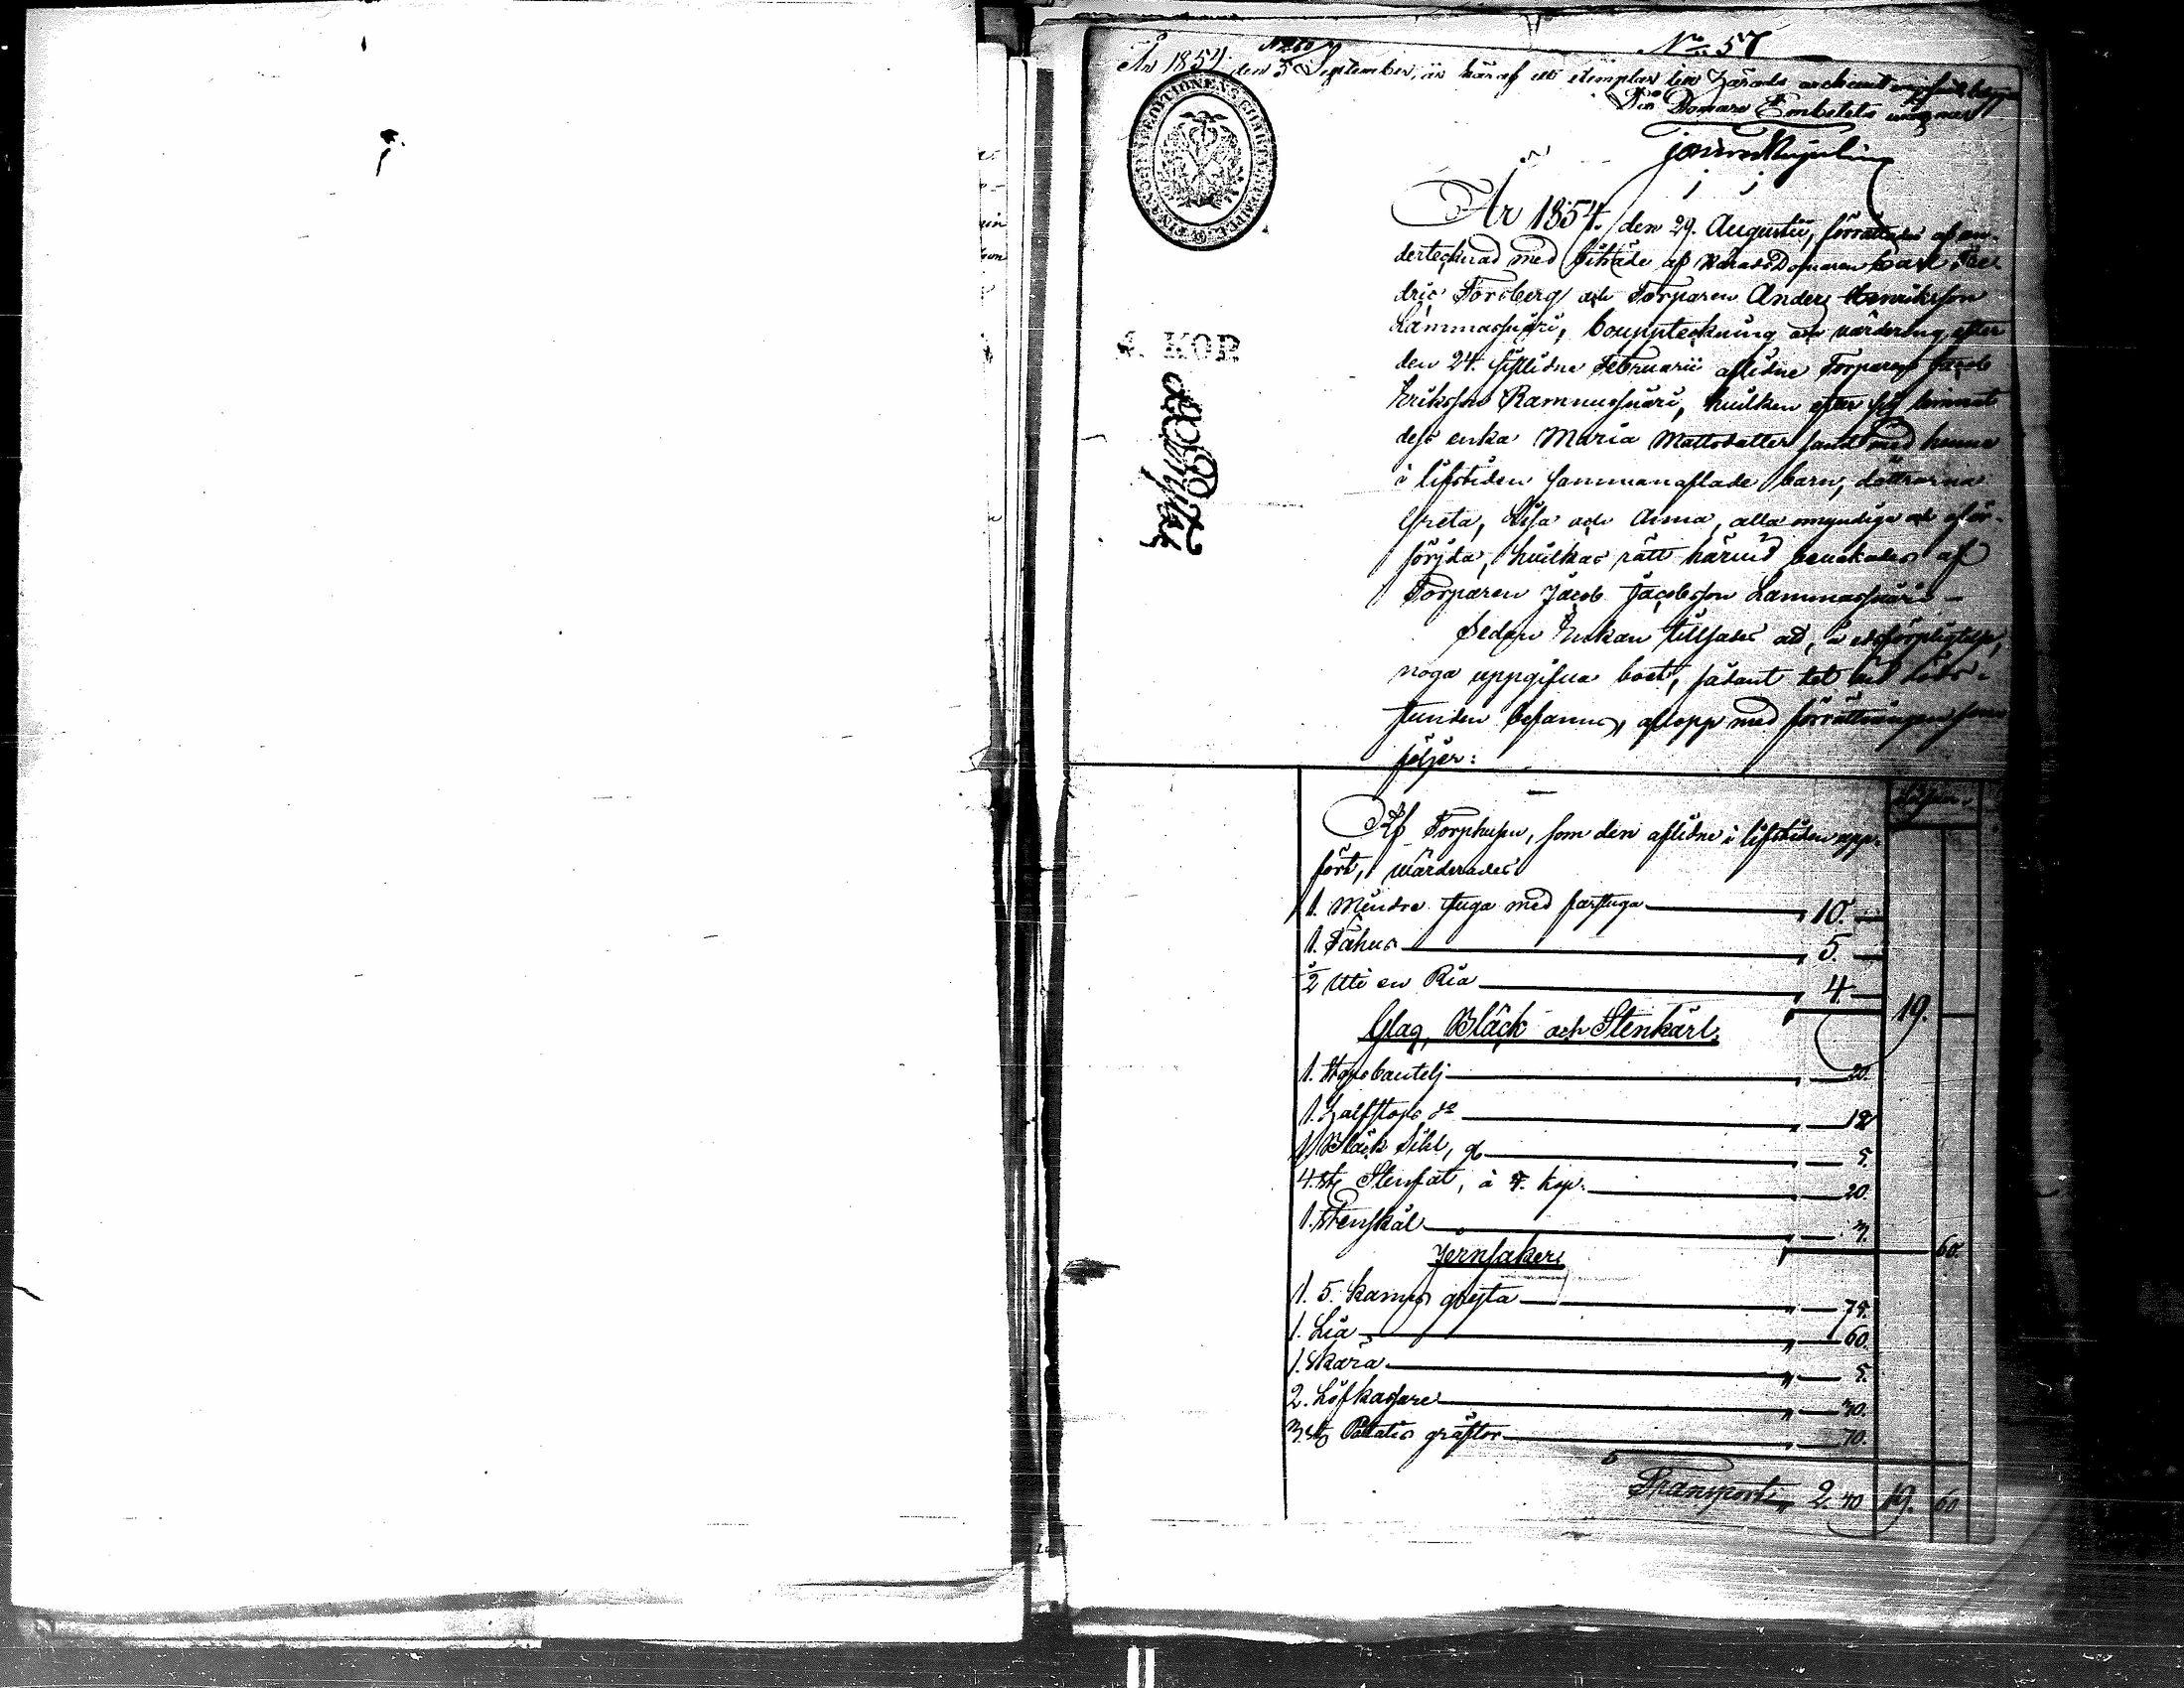 No 57
År 1854 den 5 September, är häraf ett exemplar till Härads archivet
På Domare Embetets vägnar
År 1854. den 29. Augustii, förrättades af un-
dertecknad med biträde af HäradsDomaren Carl Fre-
dric Forsberg och Torparen Anders Henriksson
Lammassuari, bouppteckning och värdering efter
den 24. sistlidne Februarii aflidne Torparen Jacob
Eriksson Rammussuari, hvilken efter sig lemnat
dess enka Maria Mattsdotter samt med henne
i lifstiden sammanaflade barn, döttrarna
Greta, Lisa och Anna, alla omyndiga och oför-
sörjda, hvilkas rätt härvid bevakades af
Torparen Jacob Jacobsson Lammassuari -
Sedan Enkan tillsades att, å edsförpligtelse,
noga uppgifva boet, sådant det vid döds-
stunden befanns, aflopp med förrättningen som
följer:
S. KOP
Silfver.
Af Torphusen, som den aflidne i lifstiden upp-
fört, värderades
1. Mindre stuga med farstuga 10.
1. Fähus 5.
1/2 Uti en Ria 4 19.
Glas, Bläck och Stenkärl.
1. Stopsbautelj 20.
1. Halfstops do 12
1 Bläck sihl, g. 5.
4. st. Stenfat, à 5. kop. 20.
1. Stenskål 3. 60.
Jernsaker.
1. 5. kannors gryta 75.
1. Lia 60.
1. Skära 5.
2. Löfkassare 30.
3. st. Potatis gräftor 70.
Transport 2. 40 19. 60